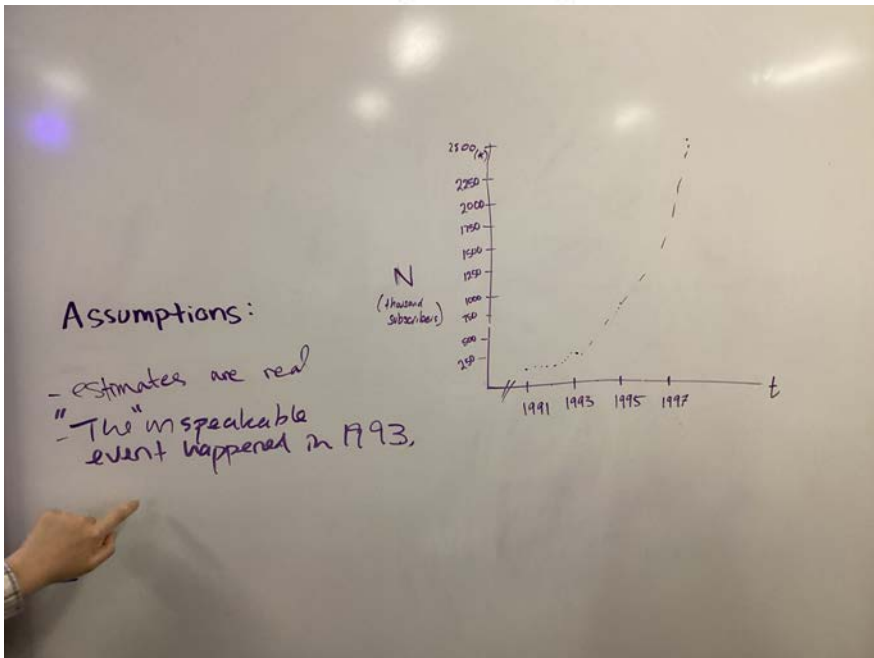 Assumptions:
- estimates are real
- "The" unspeakable
event happened in 1993.
N
(thousand
subscribers)
2500 (k)
2250
2000
1750
1500
1250
1000
750
500
250
1991 1993 1995 1997
t